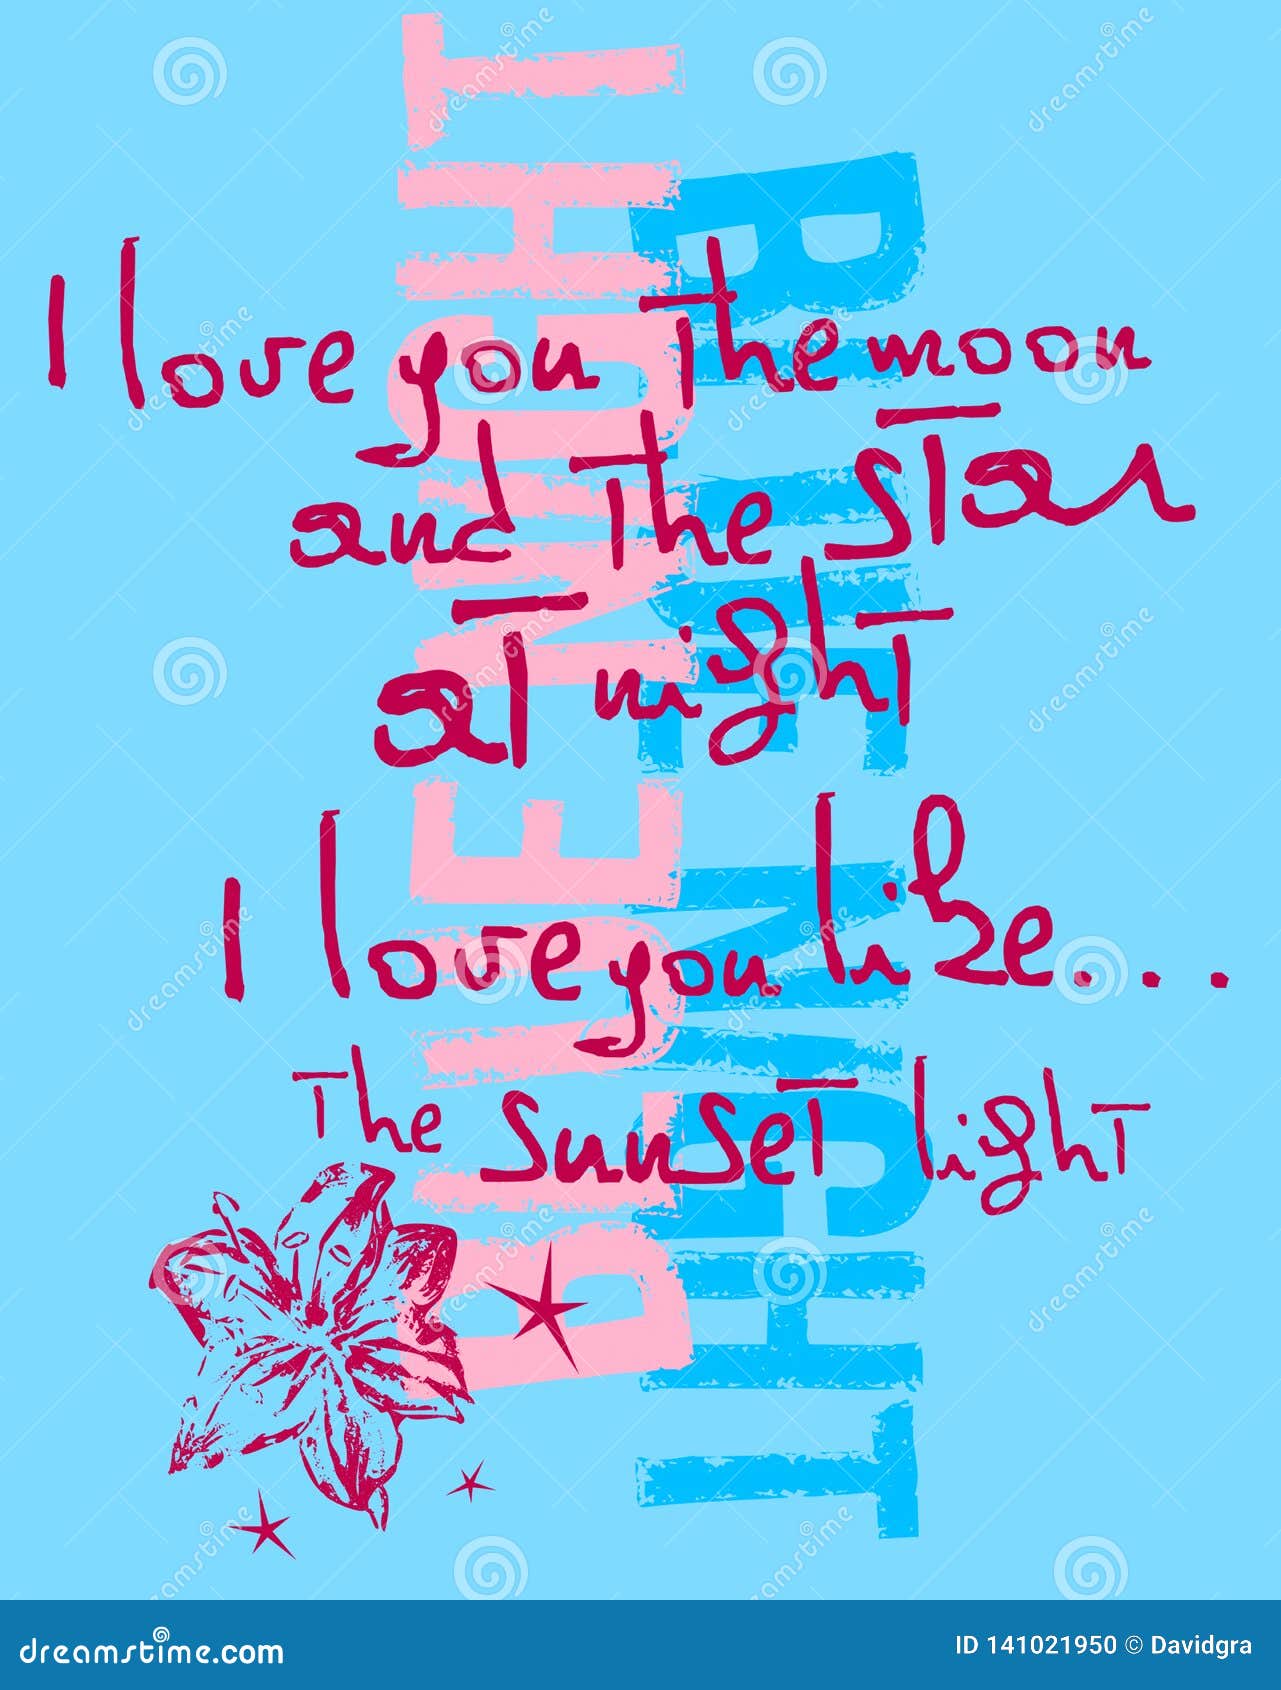 I love you the moon
and the star
at night
I love you like...
The sunset light
BLUE NIGHT
BLUE NIGHT
dreamstime.com
ID 141021950 © Davidgra